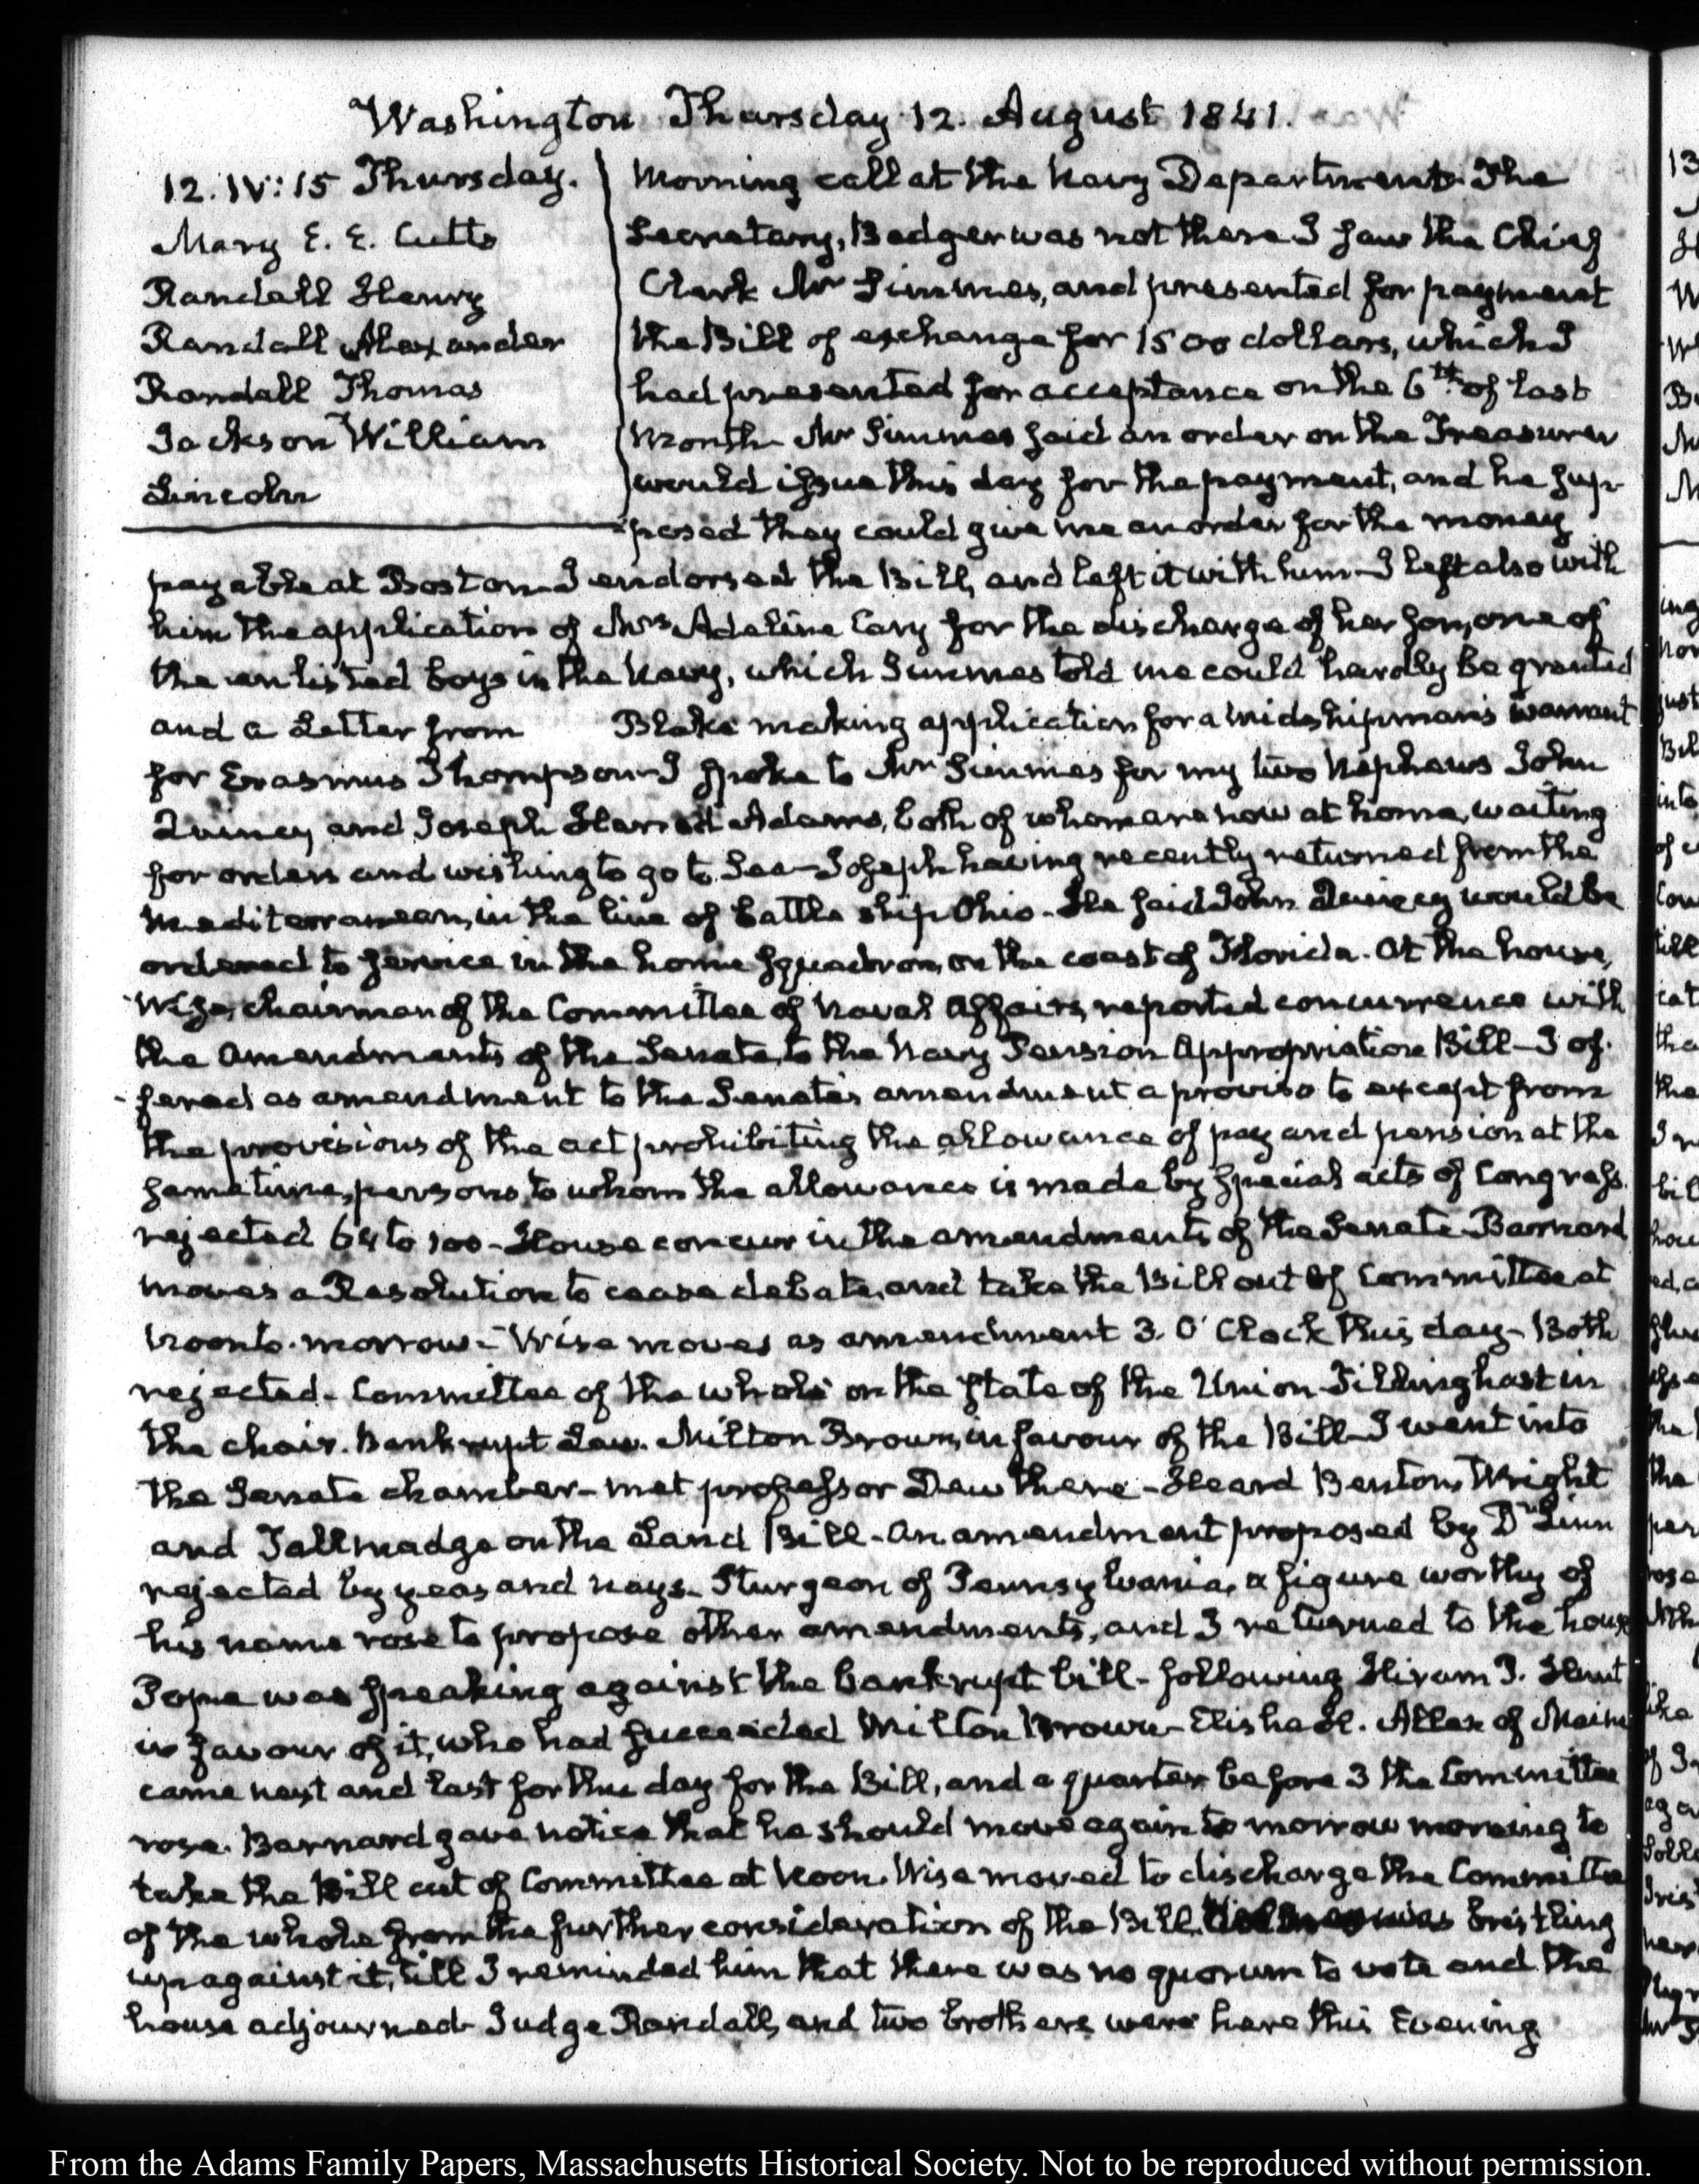 Washington Thursday 12. August 1841.
12. IV:15 Thursday.
Mary E. E. Cutts
Randall Henry
Randall Alexander
Randall Thomas
Jackson William
Lincoln
Morning call at the Navy Department. The
Secretary, Badger was not there I saw the Chief
Clerk Mr Simmes, and presented for payment
the Bill of exchange for 1500 dollars, which I
had presented for acceptance on the 6th of last
month Mr Simmes said an order on the Treasurer
would issue this day for the payment, and he sup-
posed they could give me an order for the money
payable at Boston. I endorsed the Bill, and left it with him—I left also with
him the application of Mrs Adeline Cary for the discharge of her son, one of
the enlisted boys in the Navy, which Simmes told me could hardly be granted
and a Letter from Blake making application for a midshipman's warrant
for Erasmus Thompson—I spoke to Mr Simmes for my two Nephews John
Quincy and Joseph Harrod Adams, both of whom are now at home, waiting
for orders and wishing to go to Sea—Joseph having recently returned from the
Mediterranean, in the line of battle ship Ohio. He said John Quincy would be
ordered to service in the home squadron, on the coast of Florida. At the house,
Wise, chairman of the Committee of Naval Affairs, reported concurrence with
the Amendments of the Senate, to the Navy Pension Appropriation Bill—I of-
-fered as amendment to the Senate's amendment a proviso to except from
the provisions of the act prohibiting the allowance of pay and pension at the
same time, persons, to whom the allowance is made by special acts of Congress.
rejected 64 to 100—House concur in the amendments of the Senate Barnard
moves a Resolution to cease debate, and take the Bill out of Committee at
Noon to-morrow—Wise moves as amendment 3. O'Clock this day—Both
rejected—Committee of the whole on the state of the Union Tillinghast in
the chair. Bankrupt Law. Milton Brown, in favour of the Bill—I went into
the Senate chamber—met professor Dew there—Heard Benton, Wright
and Tallmadge on the Land Bill—An amendment proposed by Dr Linn
rejected by yeas and nays. Sturgeon of Pennsylvania, a figure worthy of
his name rose to propose other amendments, and I returned to the house
Pope was speaking against the bankrupt bill—following Hiram P. Hunt
in favour of it, who had succeeded Milton Brown—Elisha H. Allen of Maine
came next and last for this day for the Bill, and a quarter before 3 the Committee
rose. Barnard gave notice that he should move again to morrow morning to
take the Bill out of Committee at Noon. Wise moved to discharge the Committee
of the whole from the further consideration of the Bill. was bristling
up against it, till I reminded him that there was no quorum to vote and the
house adjourned. Judge Randall, and two brothers were here this Evening
From the Adams Family Papers, Massachusetts Historical Society. Not to be reproduced without permission.